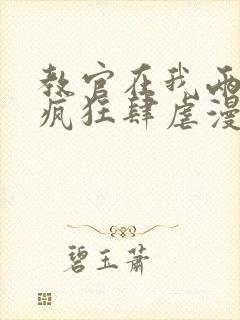 教官在我两
疯狂肆虐漫
碧玉萧